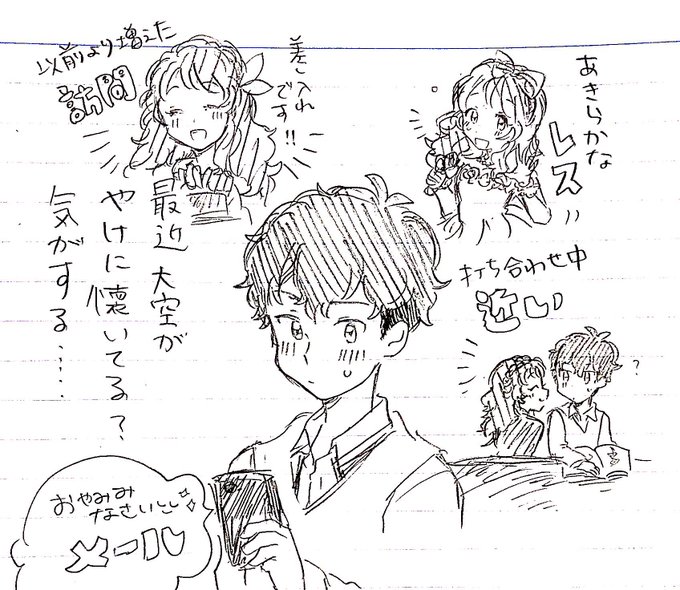 以前より増えた
訪問
差し入れ
です!!
あきらかな
レス
打ち合わせ中
近い
?
最近 大空が
やけに懐いてる?
気がする……
おやみみ
なさいとい
メール